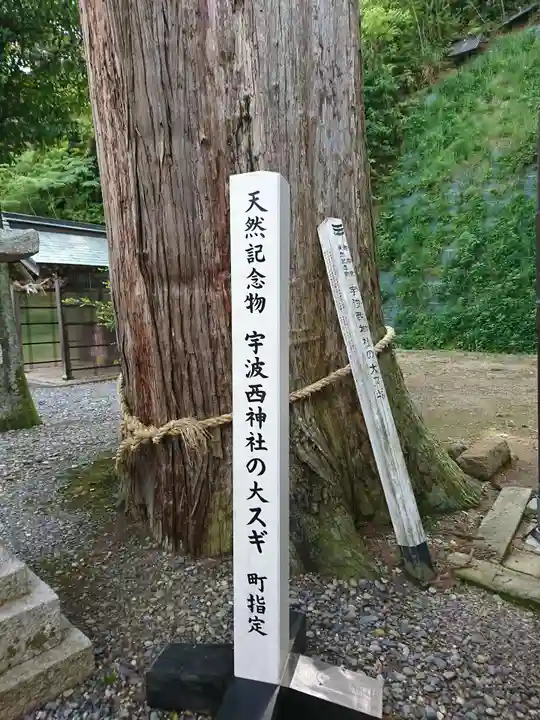 天然記念物 宇波西神社の大スギ 町指定
宇波西神社の大スギ